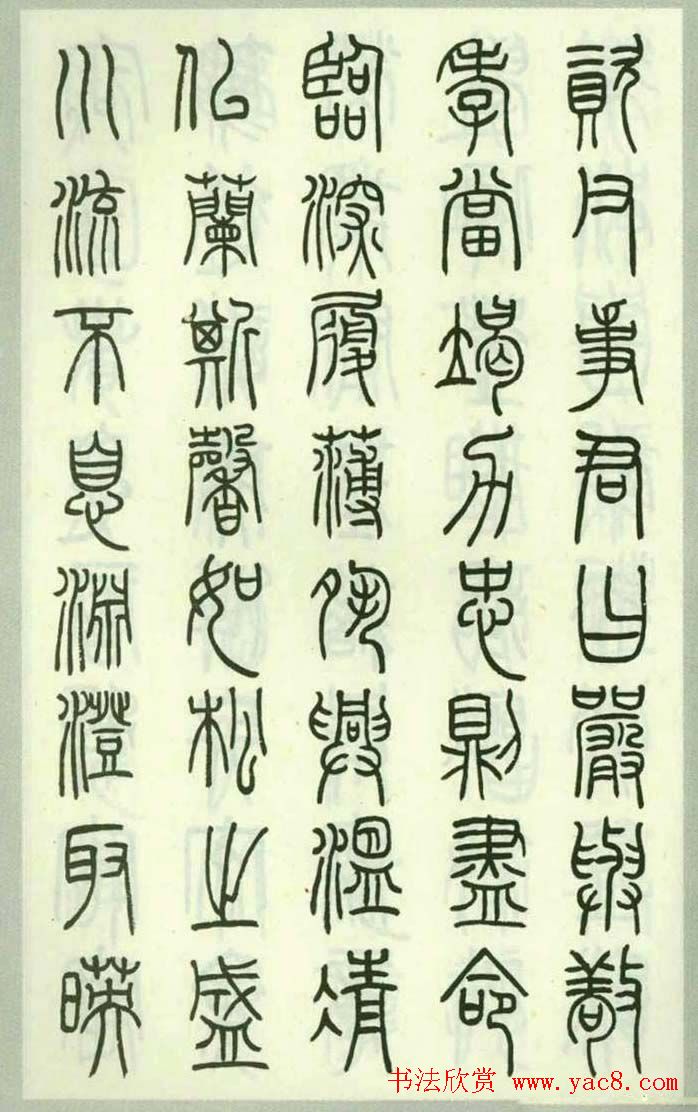 資父事君曰嚴與敬
孝當竭力忠則盡命
臨深履薄夙興溫凊
似蘭斯馨如松之盛
川流不息淵澄取暎
书法欣赏 www.yac8.com